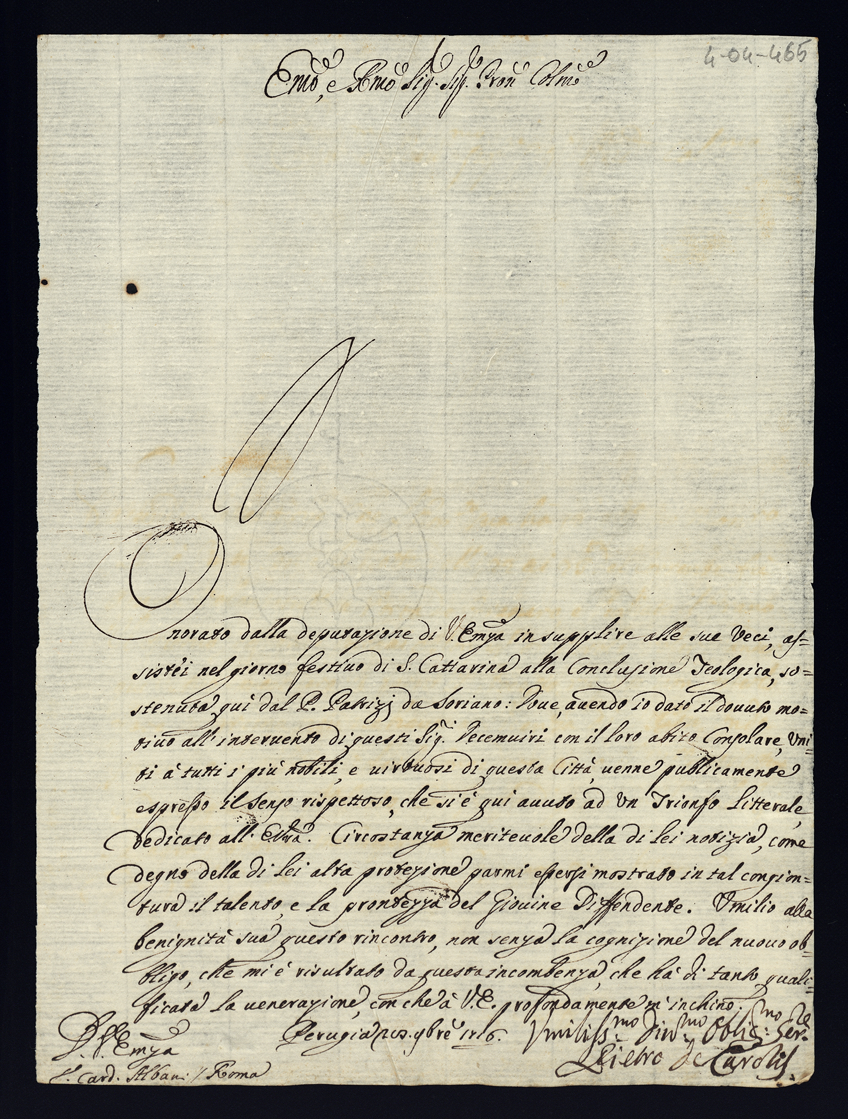 4-04-465
Emõ, e Rmõ Sig. Sig. Pron Colmo
Onorato dalla deputazione di V. Emza in supplire alle sue veci, as=
sistei nel giorno festivo di S. Cattarina alla Conclusione Teologica, so=
stenuta qui dal P. Patrizj da Soriano: Dove, avendo io dato il dovuto mo=
tivo all'intervento di questi Sig.ri Decemviri con il loro abito Consolare, Uni=
ti à tutti i più nobili, e virtuosi di questa Città, venne publicamente
espresso il senso rispettoso, che si è qui avuto ad un Trionfo Litterale,
dedicato all' Circostanza meritevole della di lei notizia, come
degno della di Lei alta protezione parmi essersi mostrato in tal congion=
tura il talento, e la prontezza del Giovine Diffendente. Umilio alla
benignità sua questo rincontro, non senza la cognizione del nuovo ob=
bligo, che mi è risultato da questa incombenza, che hà di tanto quali=
ficata la venerazione, con che à V. E. profondamente m'inchino.
Perugia 9bre 1716. Umiliss.mo Div.mo Obblig.mo Ser.re
Pietro de Carolis
V. Emza
S. Card. Albani / Roma